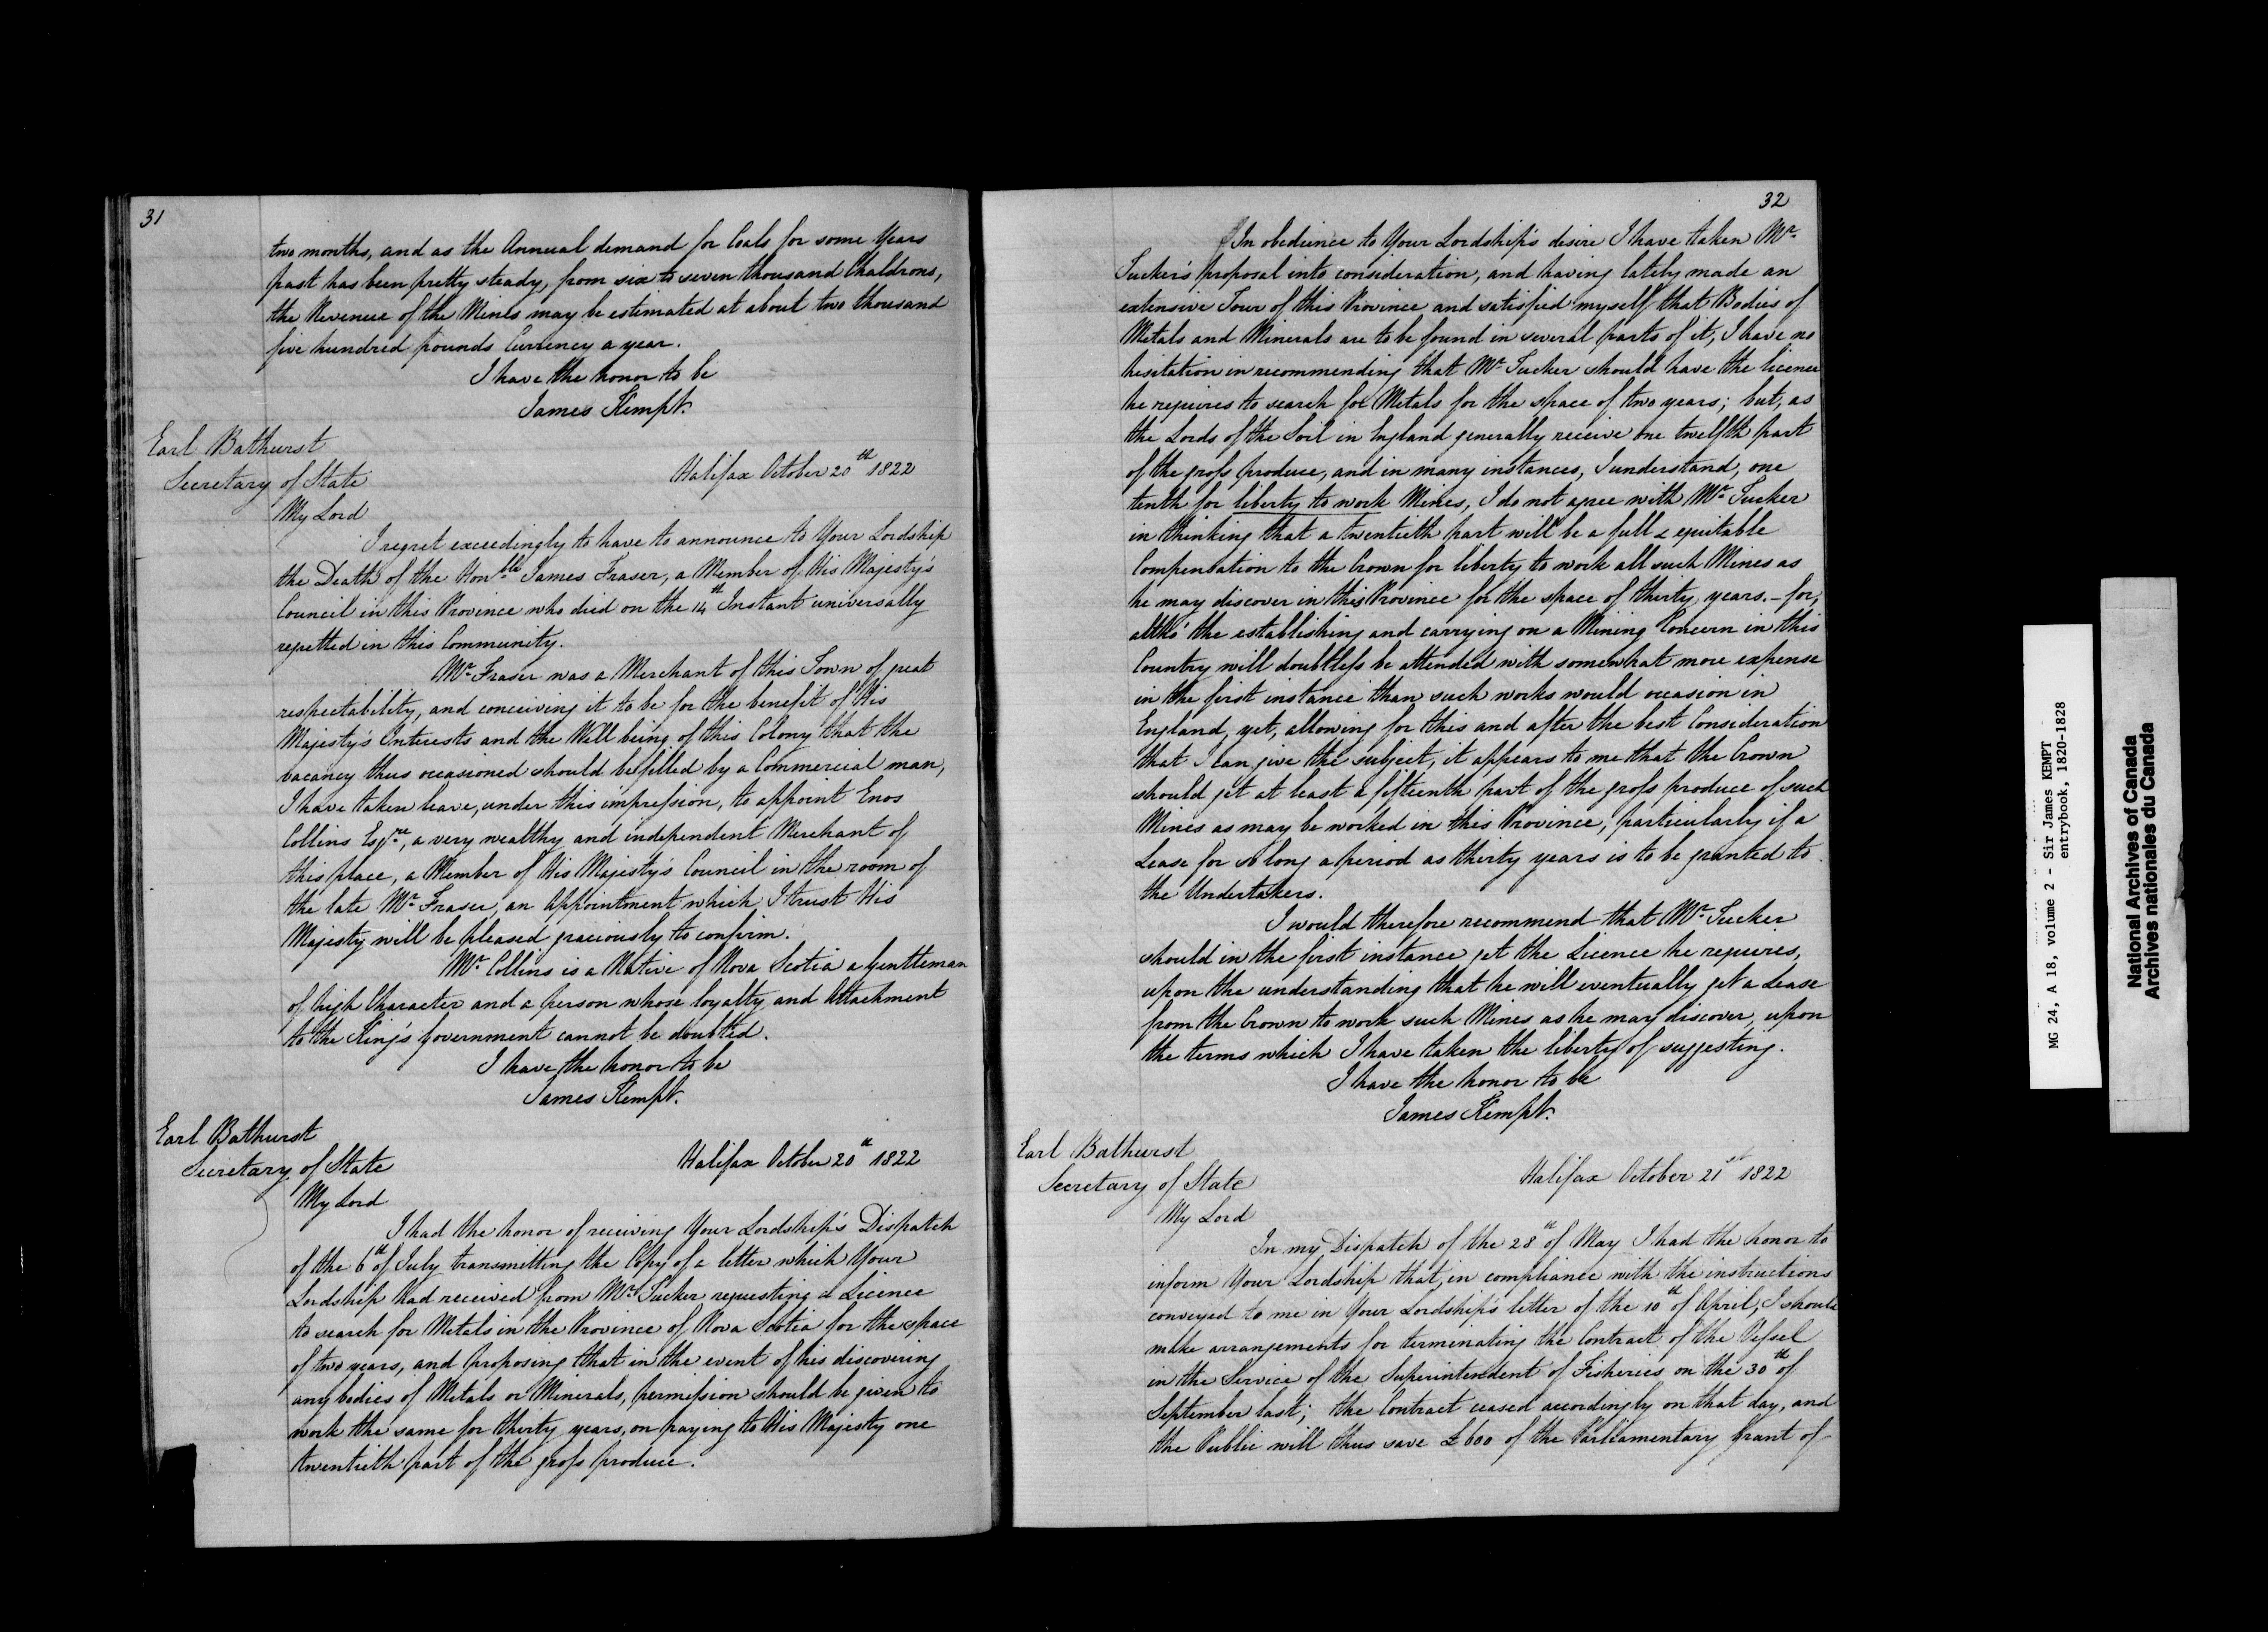 31
two months, and as the Annual demand for Coals for some Years
past has been pretty steady, from six to seven thousand Chaldrons,
the Revenue of the Mines may be estimated at about two thousand
five hundred pounds Currency a year.
I have the honor to be
James Kempt.
Earl Bathurst
Secretary of State
Halifax October 20th 1822
My Lord
I regret exceedingly to have to announce to Your Lordship
the Death of the Honble James Fraser, a Member of His Majesty's
Council in this Province who died on the 14th Instant universally
regretted in this Community.
Mr Fraser was a Merchant of this Town of great
respectability, and conceiving it to be for the benefit of His
Majesty's Interests and the Well being of this Colony that the
vacancy thus occasioned should be filled by a Commercial man,
I have taken leave, under this impression, to appoint Enos
Collins Esqre, a very wealthy and independent Merchant of
this place, a Member of His Majesty's Council in the room of
the late Mr Fraser, an Appointment which I trust His
Majesty will be pleased graciously to confirm.
Mr Collins is a Native of Nova Scotia a Gentleman
of high Character and a person whose loyalty and Attachment
to the King's Government cannot be doubted.
I have the honor to be
James Kempt.
Earl Bathurst
Secretary of State
Halifax October 20th 1822
My Lord
I had the honor of receiving Your Lordship's Dispatch
of the 6th of July transmitting the Copy of a letter which Your
Lordship had received from Mr Tucker requesting a Licence
to search for Metals in the Province of Nova Scotia for the space
of two years, and proposing that in the event of his discovering
any bodies of Metals or Minerals, permission should be given to
work the same for thirty years, on paying to His Majesty one
twentieth part of the gross produce.
32
In obedience to Your Lordship's desire I have taken Mr
Tucker's proposal into consideration, and having lately made an
extensive Tour of this Province and satisfied myself that Bodies of
Metals and Minerals are to be found in several parts of it, I have no
hesitation in recommending that Mr Tucker should have the licence
he requires to search for Metals for the space of two years; but, as
the Lords of the Soil in England generally receive one twelfth part
of the gross produce, and in many instances, I understand, one
tenth for liberty to work Mines, I do not agree with Mr Tucker
in thinking that a twentieth part will be a full & equitable
Compensation to the Crown for liberty to work all such Mines as
he may discover in this Province for the space of thirty years. – for,
altho' the establishing and carrying on a Mining Concern in this
Country will doubtless be attended with somewhat more expense
in the first instance than such works would occasion in
England, yet, allowing for this and after the best Consideration
that I can give the subject, it appears to me that the Crown
should get at least a fifteenth part of the gross produce of such
Mines as may be worked in this Province, particularly if a
Lease for so long a period as thirty years is to be granted to
the Undertakers.
I would therefore recommend that Mr Tucker
should in the first instance get the Licence he requires,
upon the understanding that he will eventually get a Lease
from the Crown to work such Mines as he may discover, upon
the terms which I have taken the liberty of suggesting.
I have the honor to be
James Kempt.
Earl Bathurst
Secretary of State
Halifax October 21st 1822
My Lord
In my Dispatch of the 28th of May I had the honor to
inform Your Lordship that, in compliance with the instructions
conveyed to me in Your Lordship's letter of the 10th of April, I should
make arrangements for terminating the Contract of the Vessel
in the Service of the Superintendent of Fisheries on the 30th of
September last; the Contract ceased accordingly on that day, and
the Public will thus save £600 of the Parliamentary Grant of
MG 24, A 18, volume 2 - Sir James KEMPT
entrybook, 1820-1828
National Archives of Canada
Archives nationales du Canada